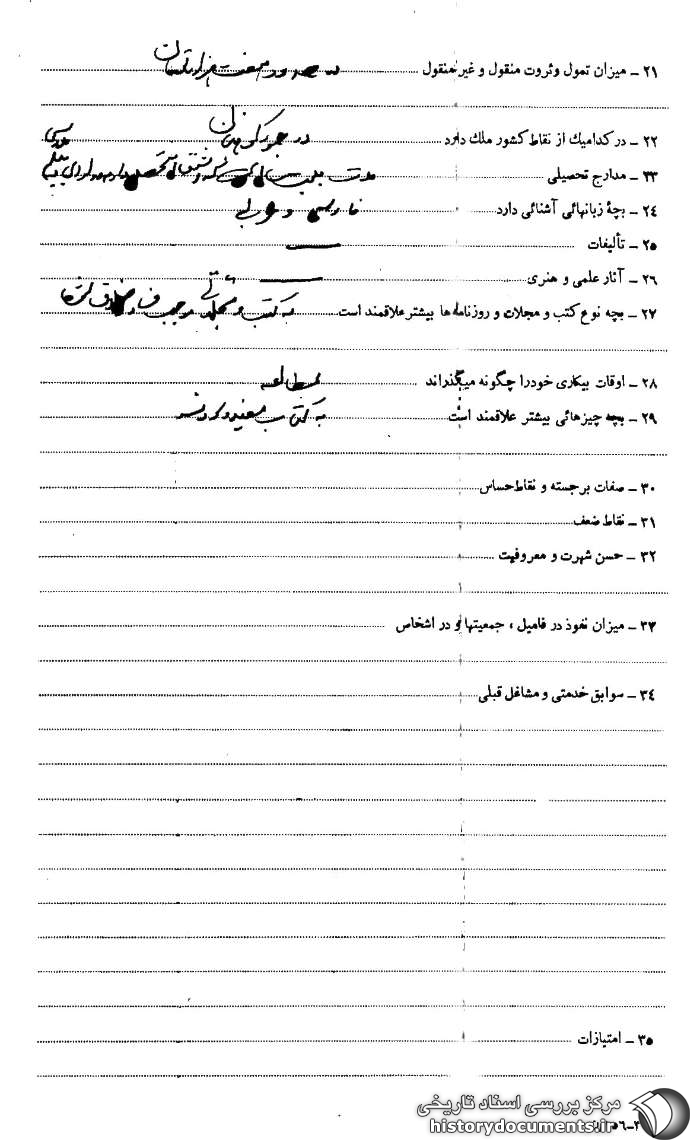 ۲۱ ـ میزان تمول وثروت منقول و غیر منقول در حدود هفت هزار تومان
۲۲ ـ در کدامیك از نقاط کشور ملك دارد در
۳۳ ـ مدارج تحصیلی
۲۴ ـ بچهٔ زبانهائی آشنائی دارد فارسی و عربی
۲۵ ـ تألیفات ــــ
۲۶ ـ آثار علمی و هنری ــــ
۲۷ ـ بچه نوع کتب و مجلات و روزنامه‌ها بیشتر علاقمند است به کتب و
۲۸ ـ اوقات بیکاری خودرا چگونه میگذراند مطالعه
۲۹ ـ بچه چیزهائی بیشتر علاقمند است به کتاب مفید
۳۰ ـ صفات برجسته و نقاط حساس
۳۱ ـ نقاط ضعف
۳۲ ـ حسن شهرت و معروفیت
۳۳ ـ میزان نفوذ در فامیل ، جمعیتها و در اشخاص
۳۴ ـ سوابق خدمتی و مشاغل قبلی
۳۵ ـ امتیازات
مرکز بررسی اسناد تاریخی
historydocuments.ir